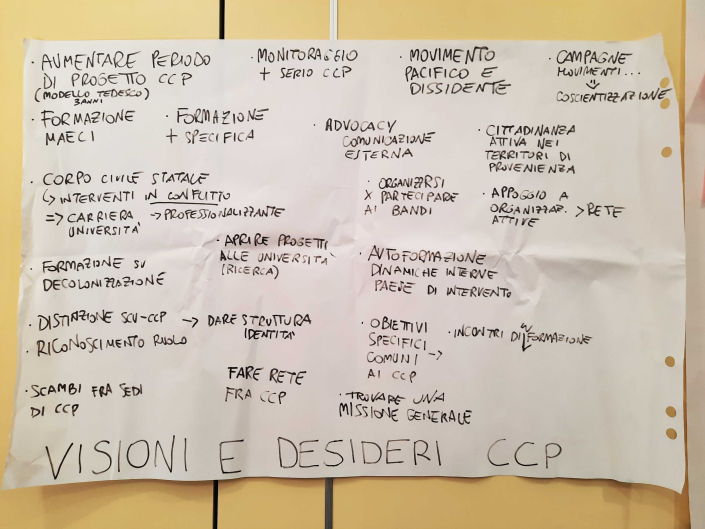 · AUMENTARE PERIODO
DI PROGETTO CCP
(MODELLO TEDESCO)
3ANNI
· MONITORAGGIO
+ SERIO CCP
· MOVIMENTO
PACIFICO E
DISSIDENTE
· CAMPAGNE
MOVIMENTI...
COSCIENTIZZAZIONE
· FORMAZIONE
MAECI
· FORMAZIONE
+ SPECIFICA
· ADVOCACY
COMUNICAZIONE
ESTERNA
· CITTADINANZA
ATTIVA NEI
TERRITORI DI
PROVENIENZA
· CORPO CIVILE STATALE
↳ INTERVENTI IN CONFLITTO
=> CARRIERA → PROFESSIONALIZZANTE
UNIVERSITÀ
· ORGANIZZRSI
X PARTECIPARE
AI BANDI
· APPOGGIO A
ORGANIZZAZ. > RETE
ATTIVE
· APRIRE PROGETTI
ALLE UNIVERSITÀ
(RICERCA)
· FORMAZIONE SU
DECOLONIZZAZIONE
· AUTOFORMAZIONE
DINAMICHE INTERNE
PAESE DI INTERVENTO
· DISTINZIONE SCU-CCP → DARE STRUTTURA
IDENTITÀ
· RICONOSCIMENTO RUOLO
· OBIETTIVI
SPECIFICI
COMUNI →
AI CCP
· INCONTRI DI FORMAZIONE
· SCAMBI FRA SEDI
DI CCP
FARE RETE
FRA CCP
· TROVARE UNA
MISSIONE GENERALE
VISIONI E DESIDERI CCP